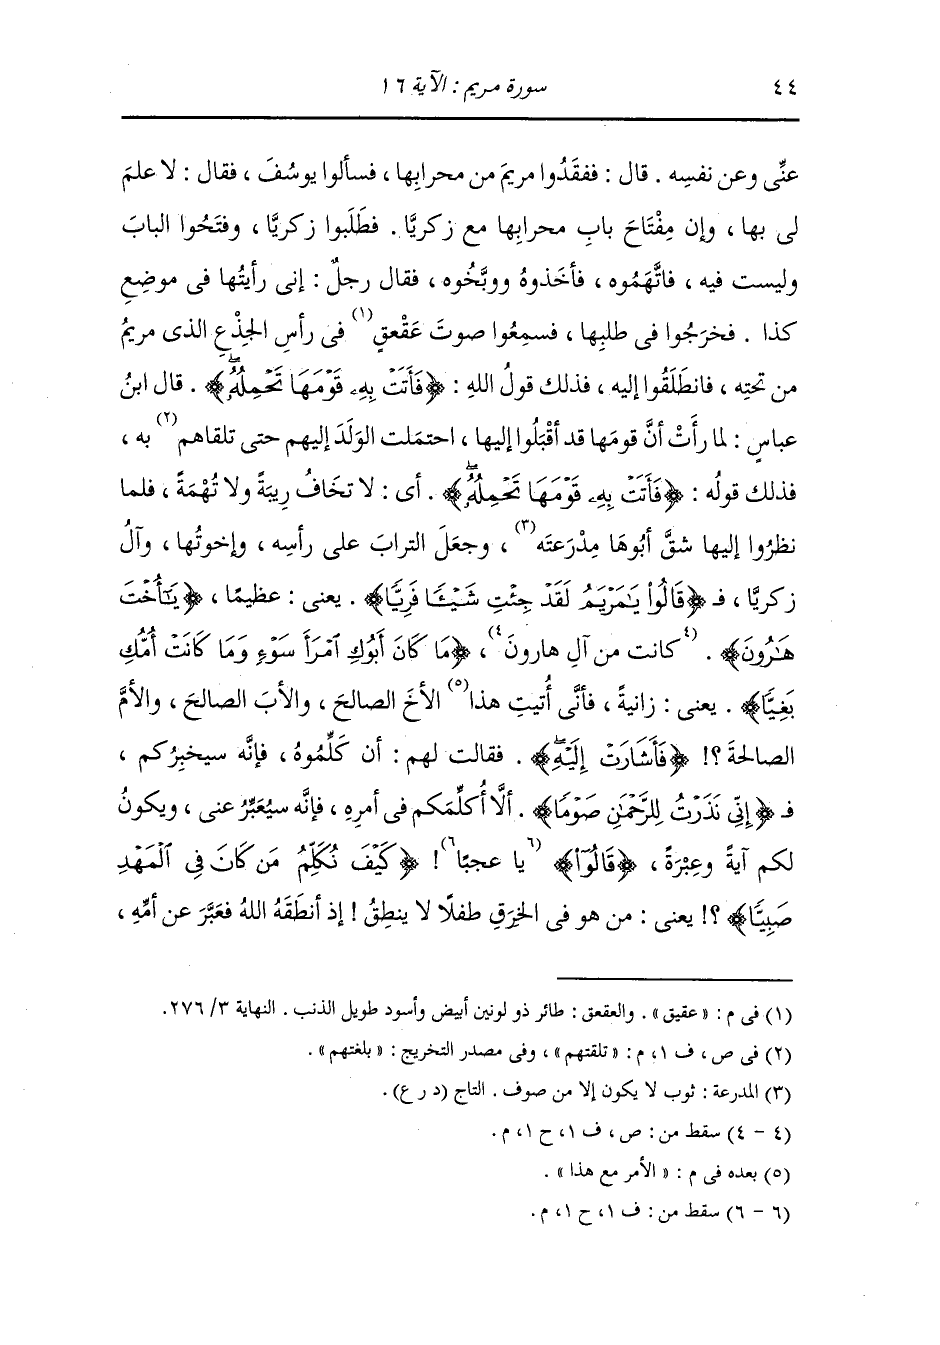 ٤٤ سورة مريم : الآية ١٦
عنِّى وعن نفسِه . قال : ففقَدُوا مريمَ من محرابِها ، فسألوا يوسُفَ ، فقال : لا علمَ
لى بها ، وإن مِفْتَاحَ بابِ محرابِها مع زكريَّا . فطَلَبوا زكريَّا ، وفتَحُوا البابَ
وليست فيه ، فاتَّهَمُوه ، فأخَذوهُ ووبَّخُوه ، فقال رجلٌ : إنى رأيتُها فى موضِعِ
كذا . فخرَجُوا فى طلبِها ، فسمِعُوا صوتَ عَقْعقٍ(١) فى رأسِ الجِذْعِ الذى مريمُ
من تحتِه ، فانطَلَقُوا إليه ، فذلك قولُ اللهِ : ﴿فَأَتَتْ بِهِۦ قَوْمَهَا تَحْمِلُهُۥۖ﴾ . قال ابنُ
عباسٍ : لما رأَتْ أنَّ قومَها قد أقْبَلُوا إليها ، احتمَلت الوَلَدَ إليهم حتى تلقاهم(٢) به ،
فذلك قولُه : ﴿فَأَتَتْ بِهِۦ قَوْمَهَا تَحْمِلُهُۥۖ﴾ . أى : لا تخَافُ رِيبَةً ولا تُهْمَةً ، فلما
نظرُوا إليها شقَّ أبُوهَا مِدْرَعتَه(٣) ، وجعَلَ الترابَ على رأسِه ، وإخوتُها ، وآلُ
زكريَّا ، فـ ﴿قَالُواْ يَٰمَرْيَمُ لَقَدْ جِئْتِ شَيْـًٔا فَرِيًّا﴾ . يعنى : عظيمًا ، ﴿يَٰٓأُخْتَ
هَٰرُونَ﴾ . (٤كانت من آلِ هارونَ٤) ، ﴿مَا كَانَ أَبُوكِ ٱمْرَأَ سَوْءٍ وَمَا كَانَتْ أُمُّكِ
بَغِيًّا﴾ . يعنى : زانيةً ، فأنَّى أُتيتِ هذا(٥) الأخَ الصالحَ ، والأبَ الصالحَ ، والأمَّ
الصالحةَ ؟! ﴿فَأَشَارَتْ إِلَيْهِۖ﴾ . فقالت لهم : أن كَلِّمُوهُ ، فإنَّه سيخبِرُكم ،
فـ ﴿إِنِّى نَذَرْتُ لِلرَّحْمَٰنِ صَوْمًا﴾ . ألَّا أُكلِّمَكم فى أمرِه ، فإنَّه سيُعَبِّرُ عنى ، ويكونُ
لكم آيةً وعِبْرَةً ، ﴿قَالُوٓاْ﴾ (٦يا عجبًا٦) ! ﴿كَيْفَ نُكَلِّمُ مَن كَانَ فِى ٱلْمَهْدِ
صَبِيًّا﴾ ؟! يعنى : من هو فى الخِرَقِ طفلًا لا ينطِقُ ! إذ أنطَقَهُ اللهُ فعَبَّرَ عن أمِّهِ ،
(١) فى م : « عقيق » . والعقعق : طائر ذو لونين أبيض وأسود طويل الذنب . النهاية ٣/ ٢٧٦.
(٢) فى ص ، ف ١، م : « تلقتهم » ، وفى مصدر التخريج : « بلغتهم » .
(٣) المدرعة : ثوب لا يكون إلا من صوف . التاج (د ر ع) .
(٤ - ٤) سقط من : ص ، ف ١، ح ١، م .
(٥) بعده فى م : « الأمر مع هذا » .
(٦ - ٦) سقط من : ف ١، ح ١، م .